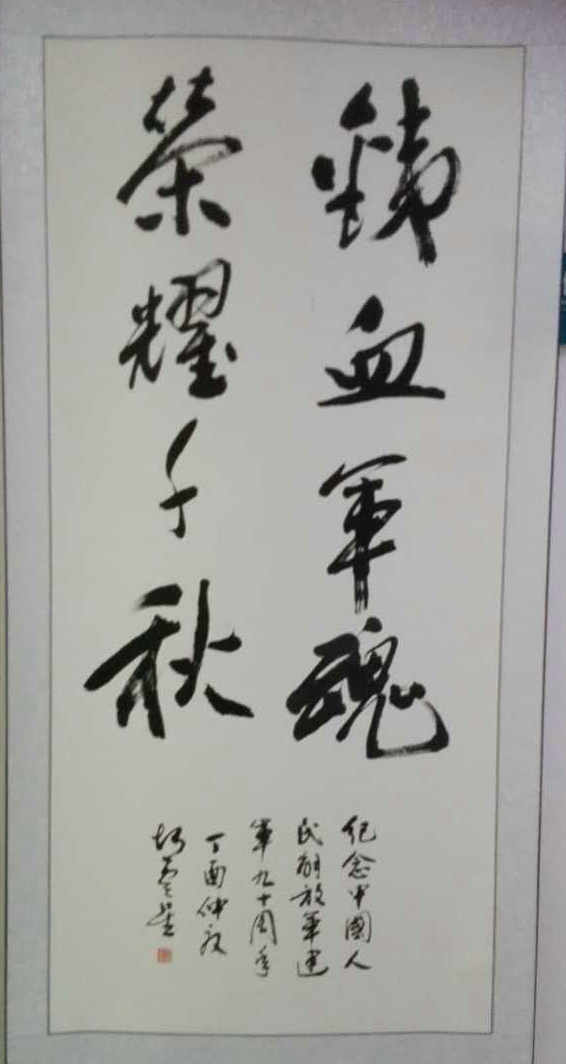 銕血軍魂
榮耀千秋
紀念中國人
民解放軍建
軍九十周年
丁酉仲夏